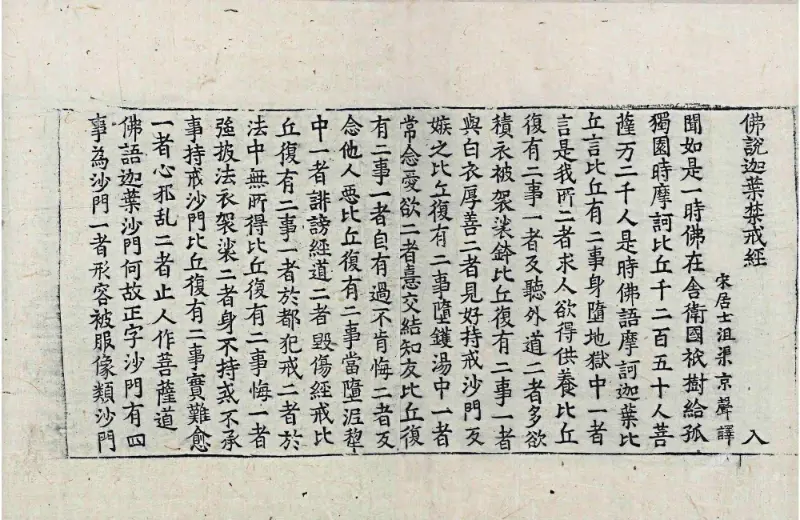 佛說迦葉禁戒經 入
宋居士沮渠京聲譯
聞如是一時佛在舍衛國祇樹給孤
獨園時摩訶比丘千二百五十人菩
薩万二千人是時佛語摩訶迦葉比
丘言比丘有二事身墮地獄中一者
言是我所二者求人欲得供養比丘
復有二事一者反聽外道二者多欲
積衣被袈裟鉢比丘復有二事一者
與白衣厚善二者見好持戒沙門反
嫉之比丘復有二事墮鑊湯中一者
常念愛欲二者憙交結知友比丘復
有二事一者自有過不肯悔二者反
念他人惡比丘復有二事當墮泥犂
中一者誹謗經道二者毀傷經戒比
丘復有二事一者於都犯戒二者於
法中無所得比丘復有二事悔一者
強披法衣袈裟二者身不持戒不承
事持戒沙門比丘復有二事實難愈
一者心邪乱二者止人作菩薩道
佛語迦葉沙門何故正字沙門有四
事為沙門一者形容被服像類沙門